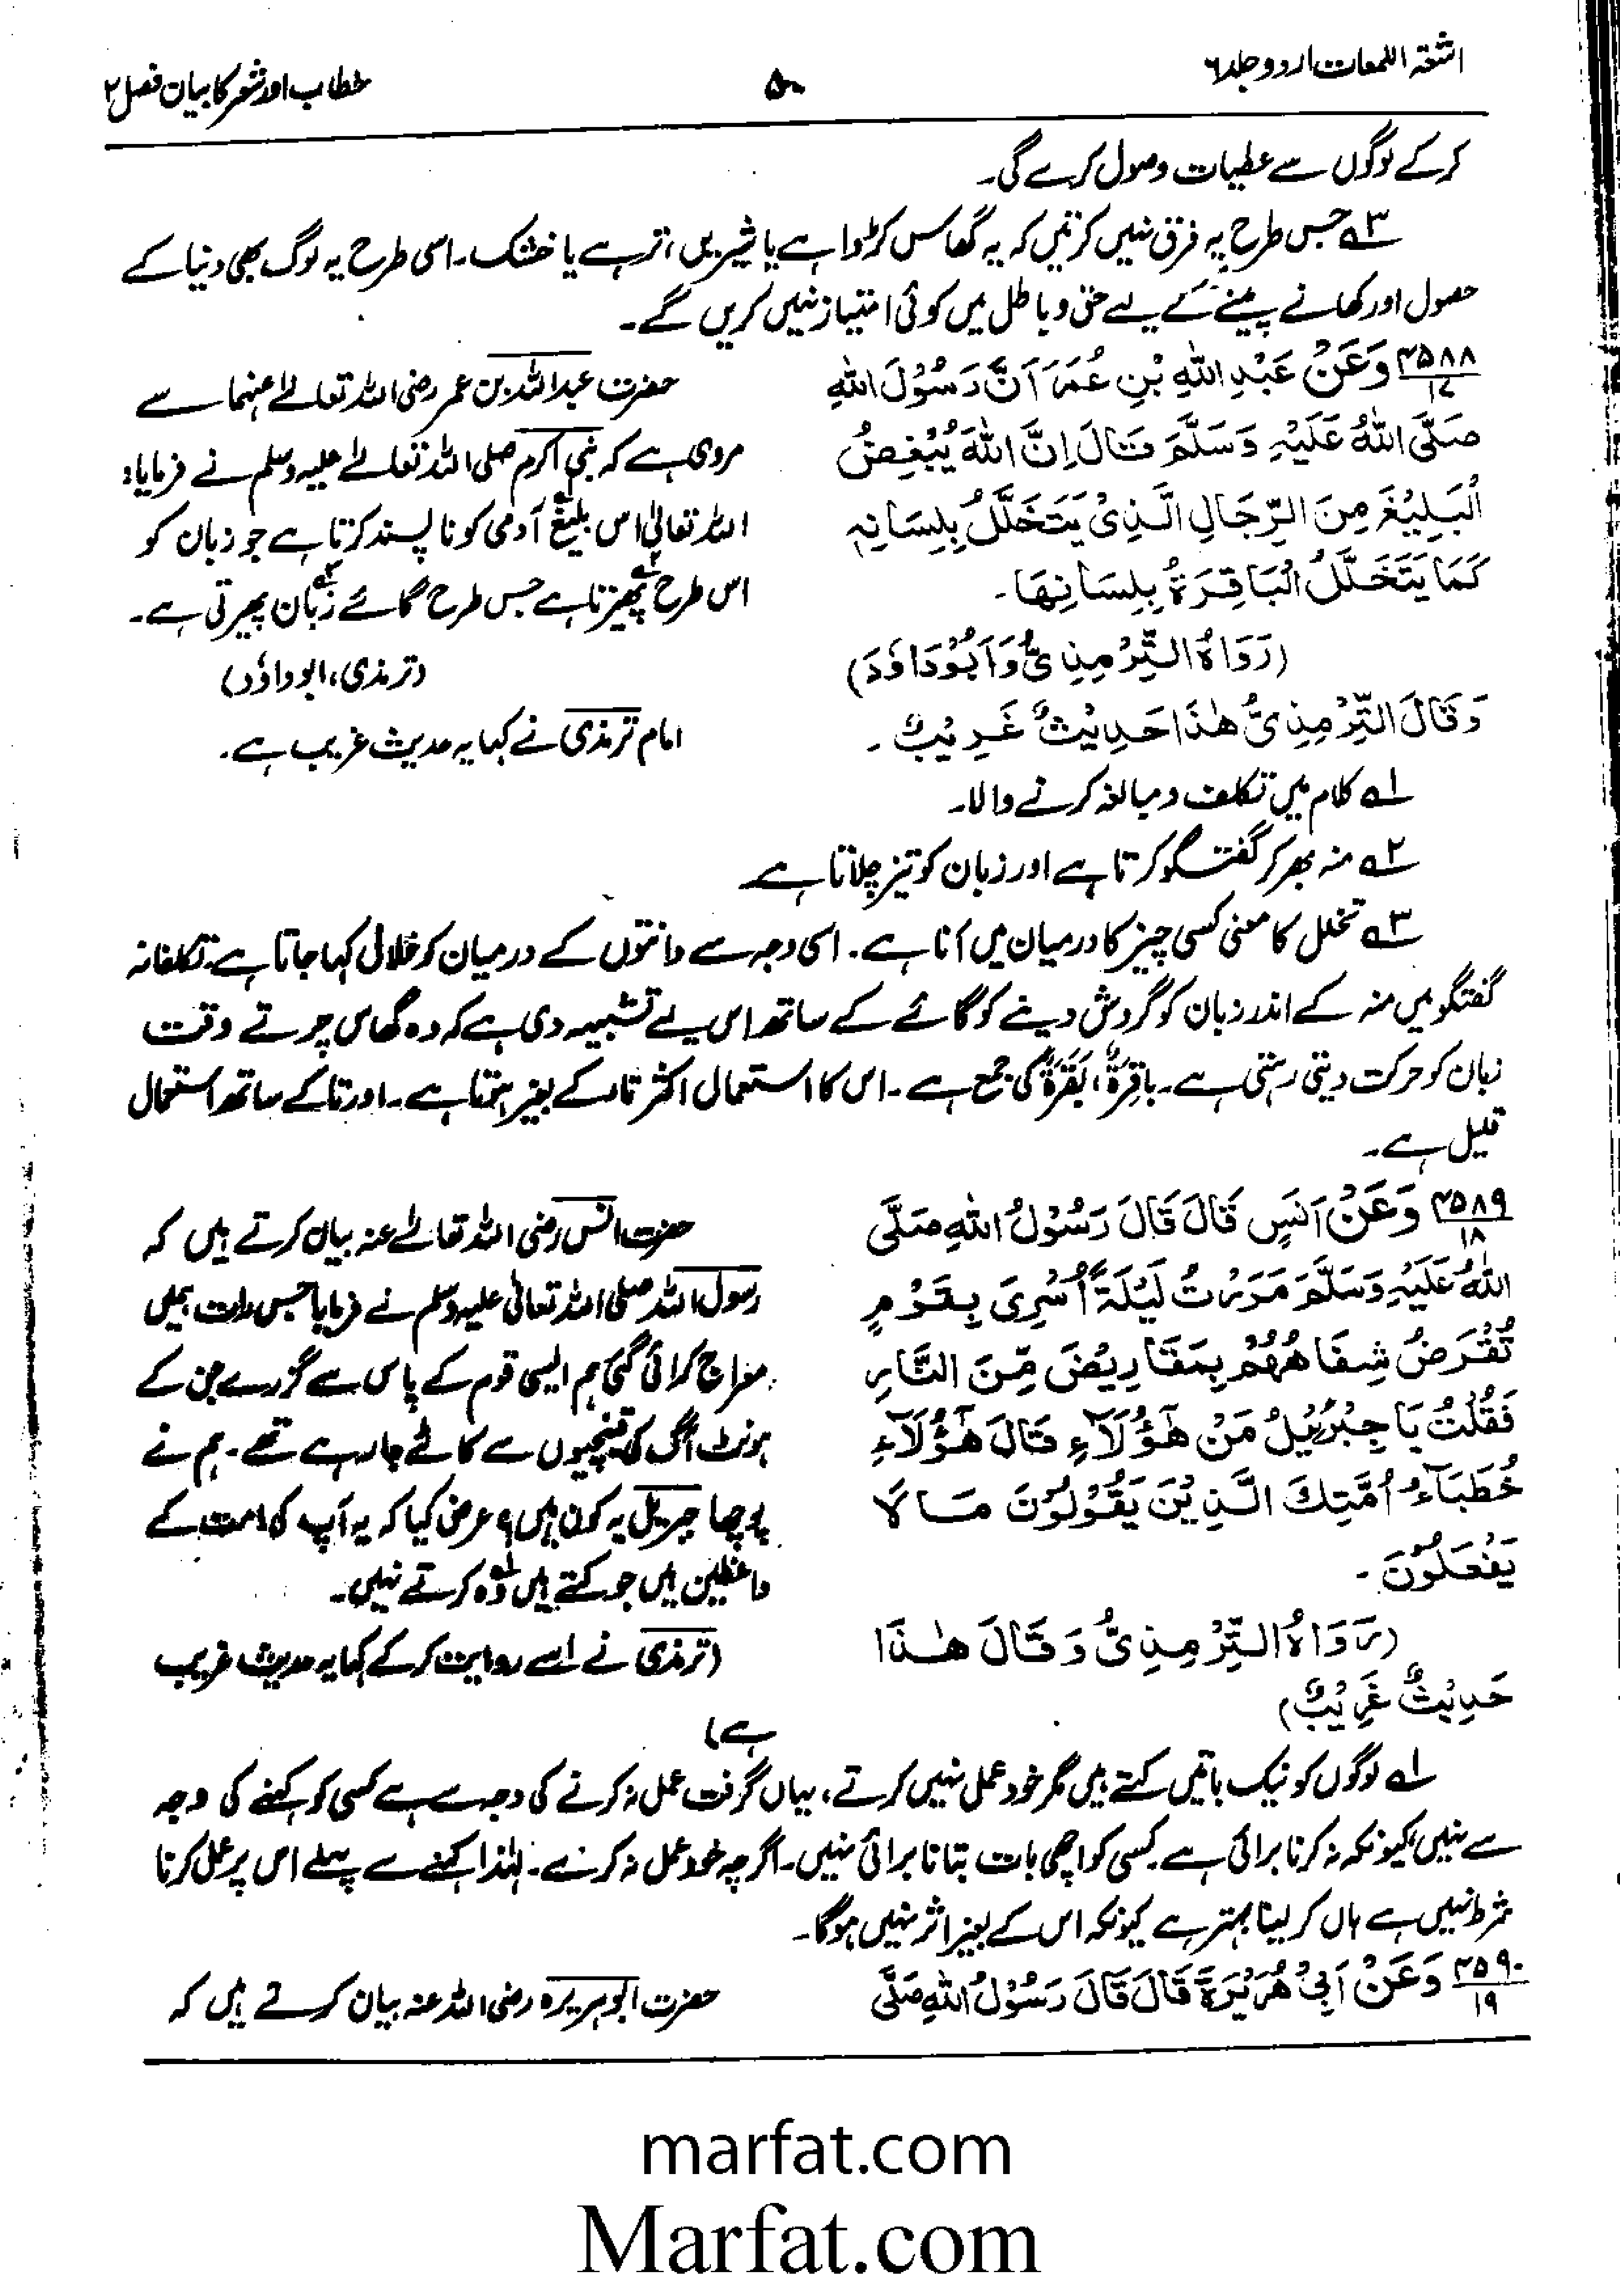 اشعۃ اللمعات اردو جلد ۶
۵۰
خطاب اور شعر کا بیان فصل ۲
کرکے لوگوں سے عطیات وصول کرے گی۔
۳ جس طرح یہ فرق نہیں کرتیں کہ یہ گھاس کڑوا ہے یا شیریں، تر ہے یا خشک۔ اسی طرح یہ لوگ بھی دنیا کے
حصول اور کھانے پینے کے لیے حق و باطل میں کوئی امتیاز نہیں کریں گے۔
۴۵۸۸/۱۷ وَعَنْ عَبْدِ اللّٰهِ بْنِ عُمَرَ اَنَّ رَسُوْلَ اللّٰهِ
صَلَّى اللّٰهُ عَلَيْهِ وَسَلَّمَ قَالَ اِنَّ اللّٰهَ يُبْغِضُ
الْبَلِيْغَ مِنَ الرِّجَالِ الَّذِىْ يَتَخَلَّلُ بِلِسَانِهٖ
كَمَا يَتَخَلَّلُ الْبَاقِرَةُ بِلِسَانِهَا۔
(رَوَاهُ التِّرْمِذِىُّ وَاَبُوْدَاوٗدَ)
وَقَالَ التِّرْمِذِىُّ هٰذَا حَدِيْثٌ غَرِيْبٌ۔
حضرت عبداللہ بن عمر رضی اللہ تعالےٰ عنہما سے
مروی ہے کہ نبی اکرم صلی اللہ تعالےٰ علیہ وسلم نے فرمایا:
اللہ تعالیٰ اس بلیغ۱ آدمی کو ناپسند کرتا ہے جو زبان کو
اس طرح پھیرتا۲ ہے جس طرح گائے زبان۳ پھیرتی ہے۔
(ترمذی، ابوداؤد)
امام ترمذی نے کہا یہ حدیث غریب ہے۔
۱ کلام میں تکلف و مبالغہ کرنے والا۔
۲ منہ بھر کر گفتگو کرتا ہے اور زبان کو تیز چلاتا ہے
۳ تخلل کا معنی کسی چیز کا درمیان میں آنا ہے۔ اسی وجہ سے دانتوں کے درمیان کو خلال کہا جاتا ہے۔ تکلفانہ
گفتگو میں منہ کے اندر زبان کو گردش دینے کو گائے کے ساتھ اس لیے تشبیہ دی ہے کہ وہ گھاس چرتے وقت
زبان کو حرکت دیتی رہتی ہے۔ باقِرَۃٌ، بَقَرَۃٌ کی جمع ہے۔ اس کا استعمال اکثر تاء کے بغیر ہوتا ہے۔ اور تا کے ساتھ استعمال
قلیل ہے۔
۴۵۸۹/۱۸ وَعَنْ اَنَسٍ قَالَ قَالَ رَسُوْلُ اللّٰهِ صَلَّى
اللّٰهُ عَلَيْهِ وَسَلَّمَ مَرَرْتُ لَيْلَةً اُسْرِىَ بِقَوْمٍ
تُقْرَضُ شِفَاهُهُمْ بِمَقَارِيْضَ مِّنَ النَّارِ
فَقُلْتُ يَا جِبْرَئِيْلُ مَنْ هٰٓؤُلَآءِ قَالَ هٰٓؤُلَآءِ
خُطَبَآءُ اُمَّتِكَ الَّذِيْنَ يَقُوْلُوْنَ مَا لَا
يَفْعَلُوْنَ۔
(رَوَاهُ التِّرْمِذِىُّ وَقَالَ هٰذَا
حَدِيْثٌ غَرِيْبٌ)
حضرت انس رضی اللہ تعالےٰ عنہ بیان کرتے ہیں کہ
رسول اللہ صلی اللہ تعالیٰ علیہ وسلم نے فرمایا جس رات ہمیں
معراج کرائی گئی ہم ایسی قوم کے پاس سے گزرے جن کے
ہونٹ آگ کی قینچیوں سے کاٹے جا رہے تھے۔ ہم نے
پوچھا جبریل یہ کون ہیں؟ عرض کیا کہ یہ آپ کی امت کے
واعظین ہیں جو کہتے ہیں وہ۱ کرتے نہیں۔
(ترمذی نے اسے روایت کرکے کہا یہ حدیث غریب
ہے)
۱ لوگوں کو نیک باتیں کہتے ہیں مگر خود عمل نہیں کرتے، یہاں گرفت عمل نہ کرنے کی وجہ سے ہے کسی کو کہنے کی وجہ
سے نہیں، کیونکہ نہ کرنا برائی ہے۔ کسی کو اچھی بات بتانا برائی نہیں۔ اگرچہ خود عمل نہ کرے۔ لہٰذا کہنے سے پہلے اس پر عمل کرنا
شرط نہیں ہے ہاں کر لینا بہتر ہے کیونکہ اس کے بغیر اثر نہیں ہوگا۔
۴۵۹۰/۱۹ وَعَنْ اَبِىْ هُرَيْرَةَ قَالَ قَالَ رَسُوْلُ اللّٰهِ صَلَّى
حضرت ابوہریرہ رضی اللہ عنہ بیان کرتے ہیں کہ
marfat.com
Marfat.com